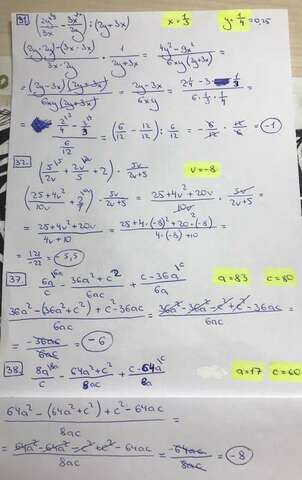 31. (2y/3x - 3x/2y) : (2y+3x) x = 1/3 y = 1/4 = 0,25
(2y·2y)-(3x·3x) / 3x·2y · 1/(2y+3x) = (4y²-9x²)/(6xy(2y+3x)) =
= (2y-3x)(2y+3x)/(6xy(2y+3x)) = (2y-3x)/(6xy) = (2·1/4-3·1/3)/(6·1/3·1/4) =
= (6/12 - 12/12) : 6/12 = -6/12 · 12/6 = -1
32. (5/2v + 2v/5 + 2) · 5v/(2v+5) v = -8
(25+4v²/10v + 2) · 5v/(2v+5) = (25+4v²+20v)/10v · 5v/(2v+5) =
= (25+4v²+20v)/(4v+10) = (25+4·(-8)²+20·(-8))/(4·(-8)+10) =
= 121/-22 = -5,5
37. 6a/c - (36a²+c²)/6ac + (c-36a)/6a a = 83 c = 80
(36a²-(36a²+c²)+c²-36ac)/6ac = (36a²-36a²-c²+c²-36ac)/6ac =
= -36ac/6ac = -6
38. 8a/c - (64a²+c²)/8ac + (c-64a)/8a a = 17 c = 60
(64a²-(64a²+c²)+c²-64ac)/8ac =
= (64a²-64a²-c²+c²-64ac)/8ac = -64ac/8ac = -8